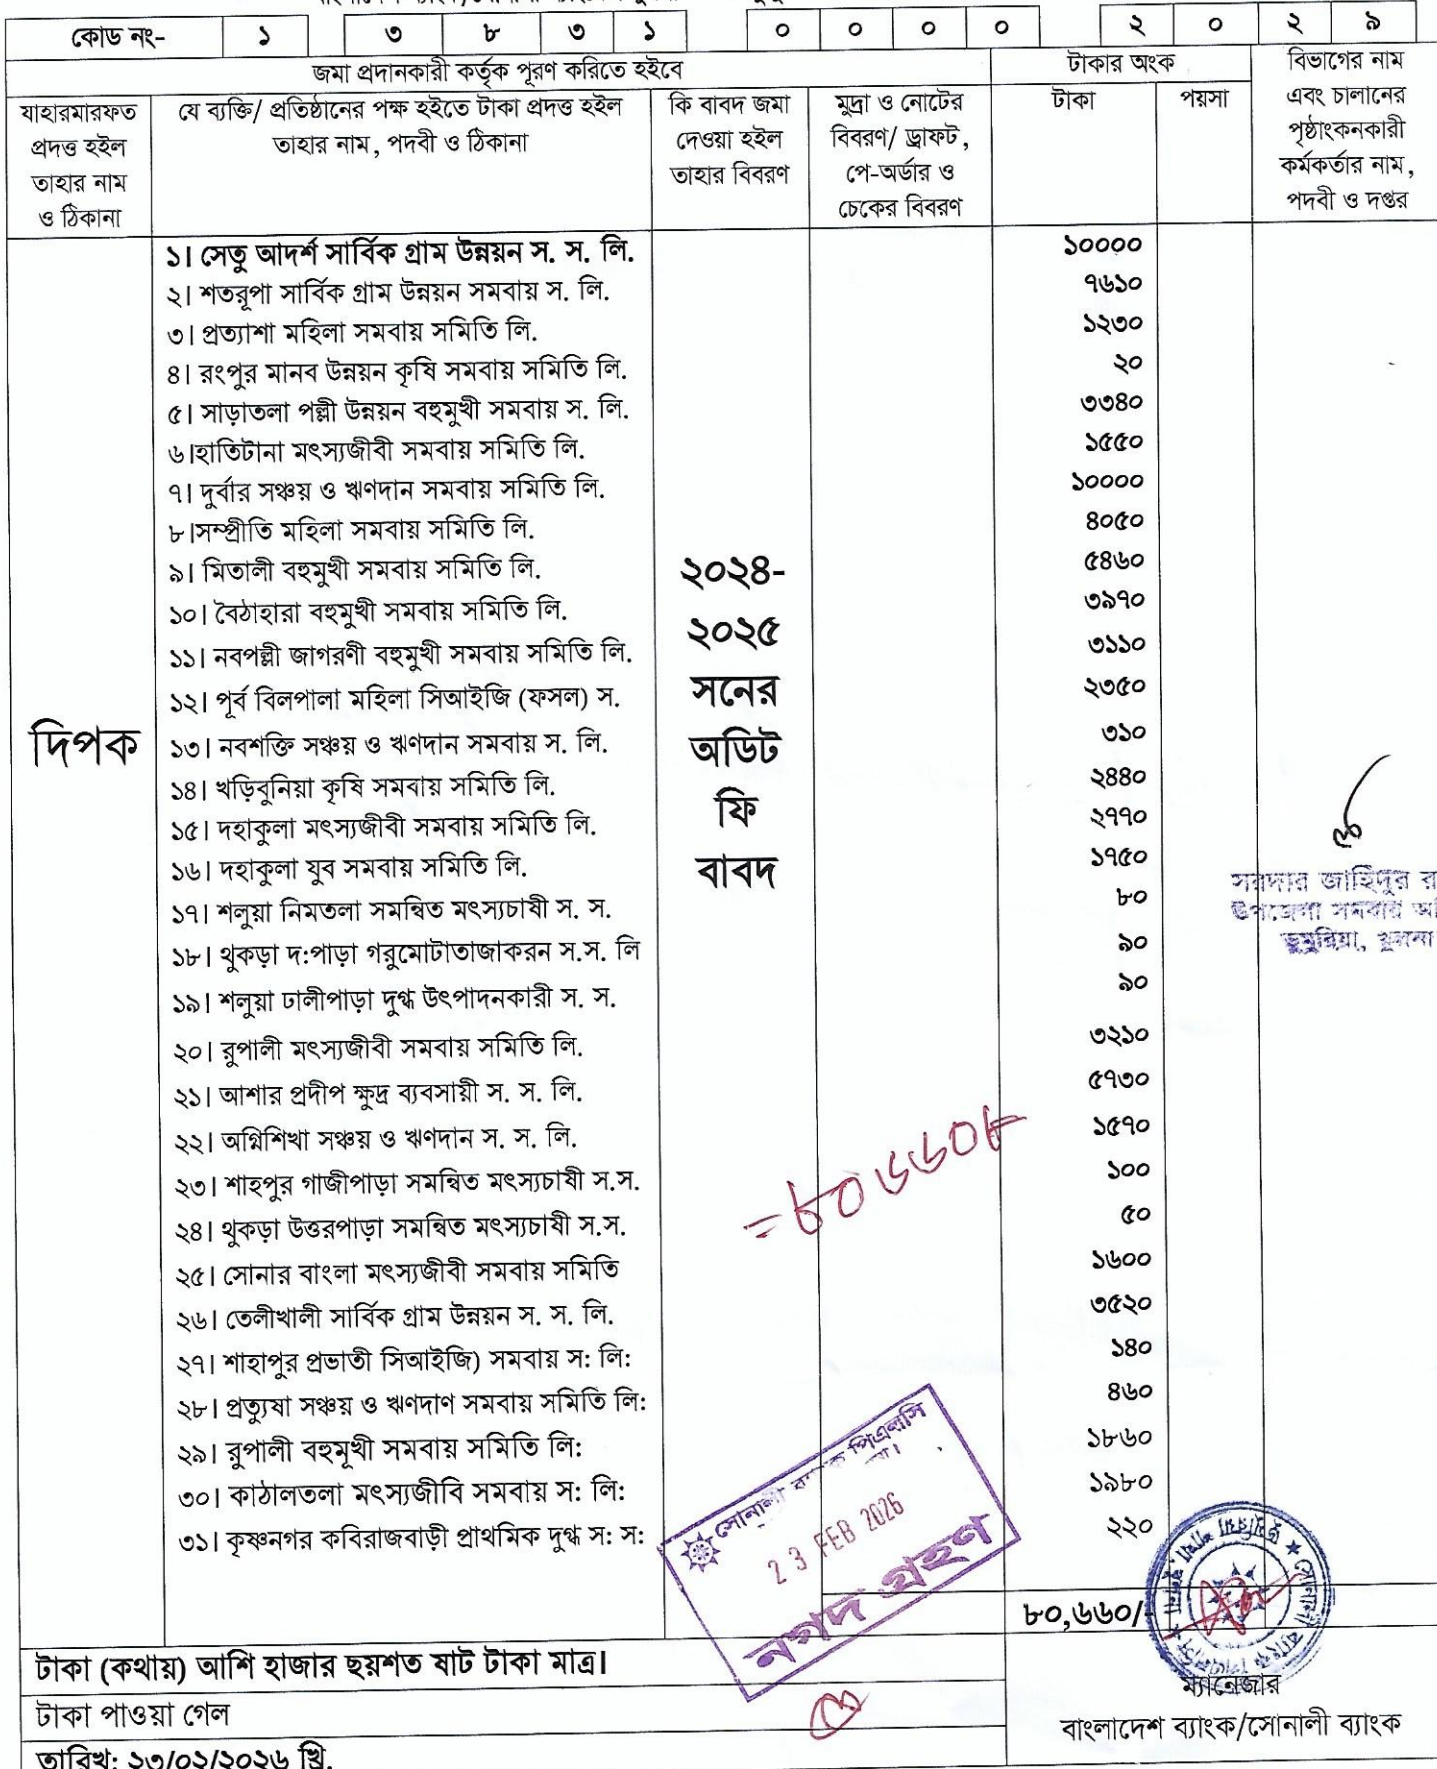 কোড নং- ১ ৩ ৮ ৩ ১ ০ ০ ০ ০ ২ ০ ২ ৯
জমা প্রদানকারী কর্তৃক পূরণ করিতে হইবে
টাকার অংক
বিভাগের নাম
এবং চালানের
পৃষ্ঠাংকনকারী
কর্মকর্তার নাম,
পদবী ও দপ্তর
যাহারমারফত
প্রদত্ত হইল
তাহার নাম
ও ঠিকানা
যে ব্যক্তি/ প্রতিষ্ঠানের পক্ষ হইতে টাকা প্রদত্ত হইল
তাহার নাম, পদবী ও ঠিকানা
কি বাবদ জমা
দেওয়া হইল
তাহার বিবরণ
মুদ্রা ও নোটের
বিবরণ/ ড্রাফট,
পে-অর্ডার ও
চেকের বিবরণ
টাকা
পয়সা
দিপক
১। সেতু আদর্শ সার্বিক গ্রাম উন্নয়ন স. স. লি. ১০০০০
২। শতরূপা সার্বিক গ্রাম উন্নয়ন সমবায় স. লি. ৭৬১০
৩। প্রত্যাশা মহিলা সমবায় সমিতি লি. ১২৩০
৪। রংপুর মানব উন্নয়ন কৃষি সমবায় সমিতি লি. ২০
৫। সাড়াতলা পল্লী উন্নয়ন বহুমুখী সমবায় স. লি. ৩৩৪০
৬।হাতিটানা মৎস্যজীবী সমবায় সমিতি লি. ১৫৫০
৭। দুর্বার সঞ্চয় ও ঋণদান সমবায় সমিতি লি. ১০০০০
৮।সম্প্রীতি মহিলা সমবায় সমিতি লি. ৪০৫০
৯। মিতালী বহুমুখী সমবায় সমিতি লি. ৫৪৬০
১০। বৈঠাহারা বহুমুখী সমবায় সমিতি লি. ৩৯৭০
১১। নবপল্লী জাগরণী বহুমুখী সমবায় সমিতি লি. ৩১১০
১২। পূর্ব বিলপালা মহিলা সিআইজি (ফসল) স. ২৩৫০
১৩। নবশক্তি সঞ্চয় ও ঋণদান সমবায় স. লি. ৩১০
১৪। খড়িবুনিয়া কৃষি সমবায় সমিতি লি. ২৪৪০
১৫। দহাকুলা মৎস্যজীবী সমবায় সমিতি লি. ২৭৭০
১৬। দহাকুলা যুব সমবায় সমিতি লি. ১৭৫০
১৭। শলুয়া নিমতলা সমন্বিত মৎস্যচাষী স. স. ৮০
১৮। থুকড়া দ:পাড়া গরুমোটাতাজাকরন স.স. লি ৯০
১৯। শলুয়া ঢালীপাড়া দুগ্ধ উৎপাদনকারী স. স. ৯০
২০। রুপালী মৎস্যজীবী সমবায় সমিতি লি. ৩২১০
২১। আশার প্রদীপ ক্ষুদ্র ব্যবসায়ী স. স. লি. ৫৭৩০
২২। অগ্নিশিখা সঞ্চয় ও ঋণদান স. স. লি. ১৫৭০
২৩। শাহপুর গাজীপাড়া সমন্বিত মৎস্যচাষী স.স. ১০০
২৪। থুকড়া উত্তরপাড়া সমন্বিত মৎস্যচাষী স.স. ৫০
২৫। সোনার বাংলা মৎস্যজীবী সমবায় সমিতি ১৬০০
২৬। তেলীখালী সার্বিক গ্রাম উন্নয়ন স. স. লি. ৩৫২০
২৭। শাহাপুর প্রভাতী সিআইজি) সমবায় স: লি: ১৪০
২৮। প্রত্যুষা সঞ্চয় ও ঋণদাণ সমবায় সমিতি লি: ৪৬০
২৯। রুপালী বহুমূখী সমবায় সমিতি লি: ১৮৬০
৩০। কাঠালতলা মৎস্যজীবি সমবায় স: লি: ১৯৮০
৩১। কৃষ্ণনগর কবিরাজবাড়ী প্রাথমিক দুগ্ধ স: স: ২২০
২০২৪-
২০২৫
সনের
অডিট
ফি
বাবদ
সরদার জাহিদুর র
উপজেলা সমবায় অ
ডুমুরিয়া, খুলনা
=৮০৬৬০/-
সোনালী ব্যাংক পিএলসি
23 FEB 2026
নগদ গ্রহণ
৮০,৬৬০/-
টাকা (কথায়) আশি হাজার ছয়শত ষাট টাকা মাত্র।
টাকা পাওয়া গেল
ম্যানেজার
বাংলাদেশ ব্যাংক/সোনালী ব্যাংক
তারিখ: ২৩/০২/২০২৬ খ্রি.